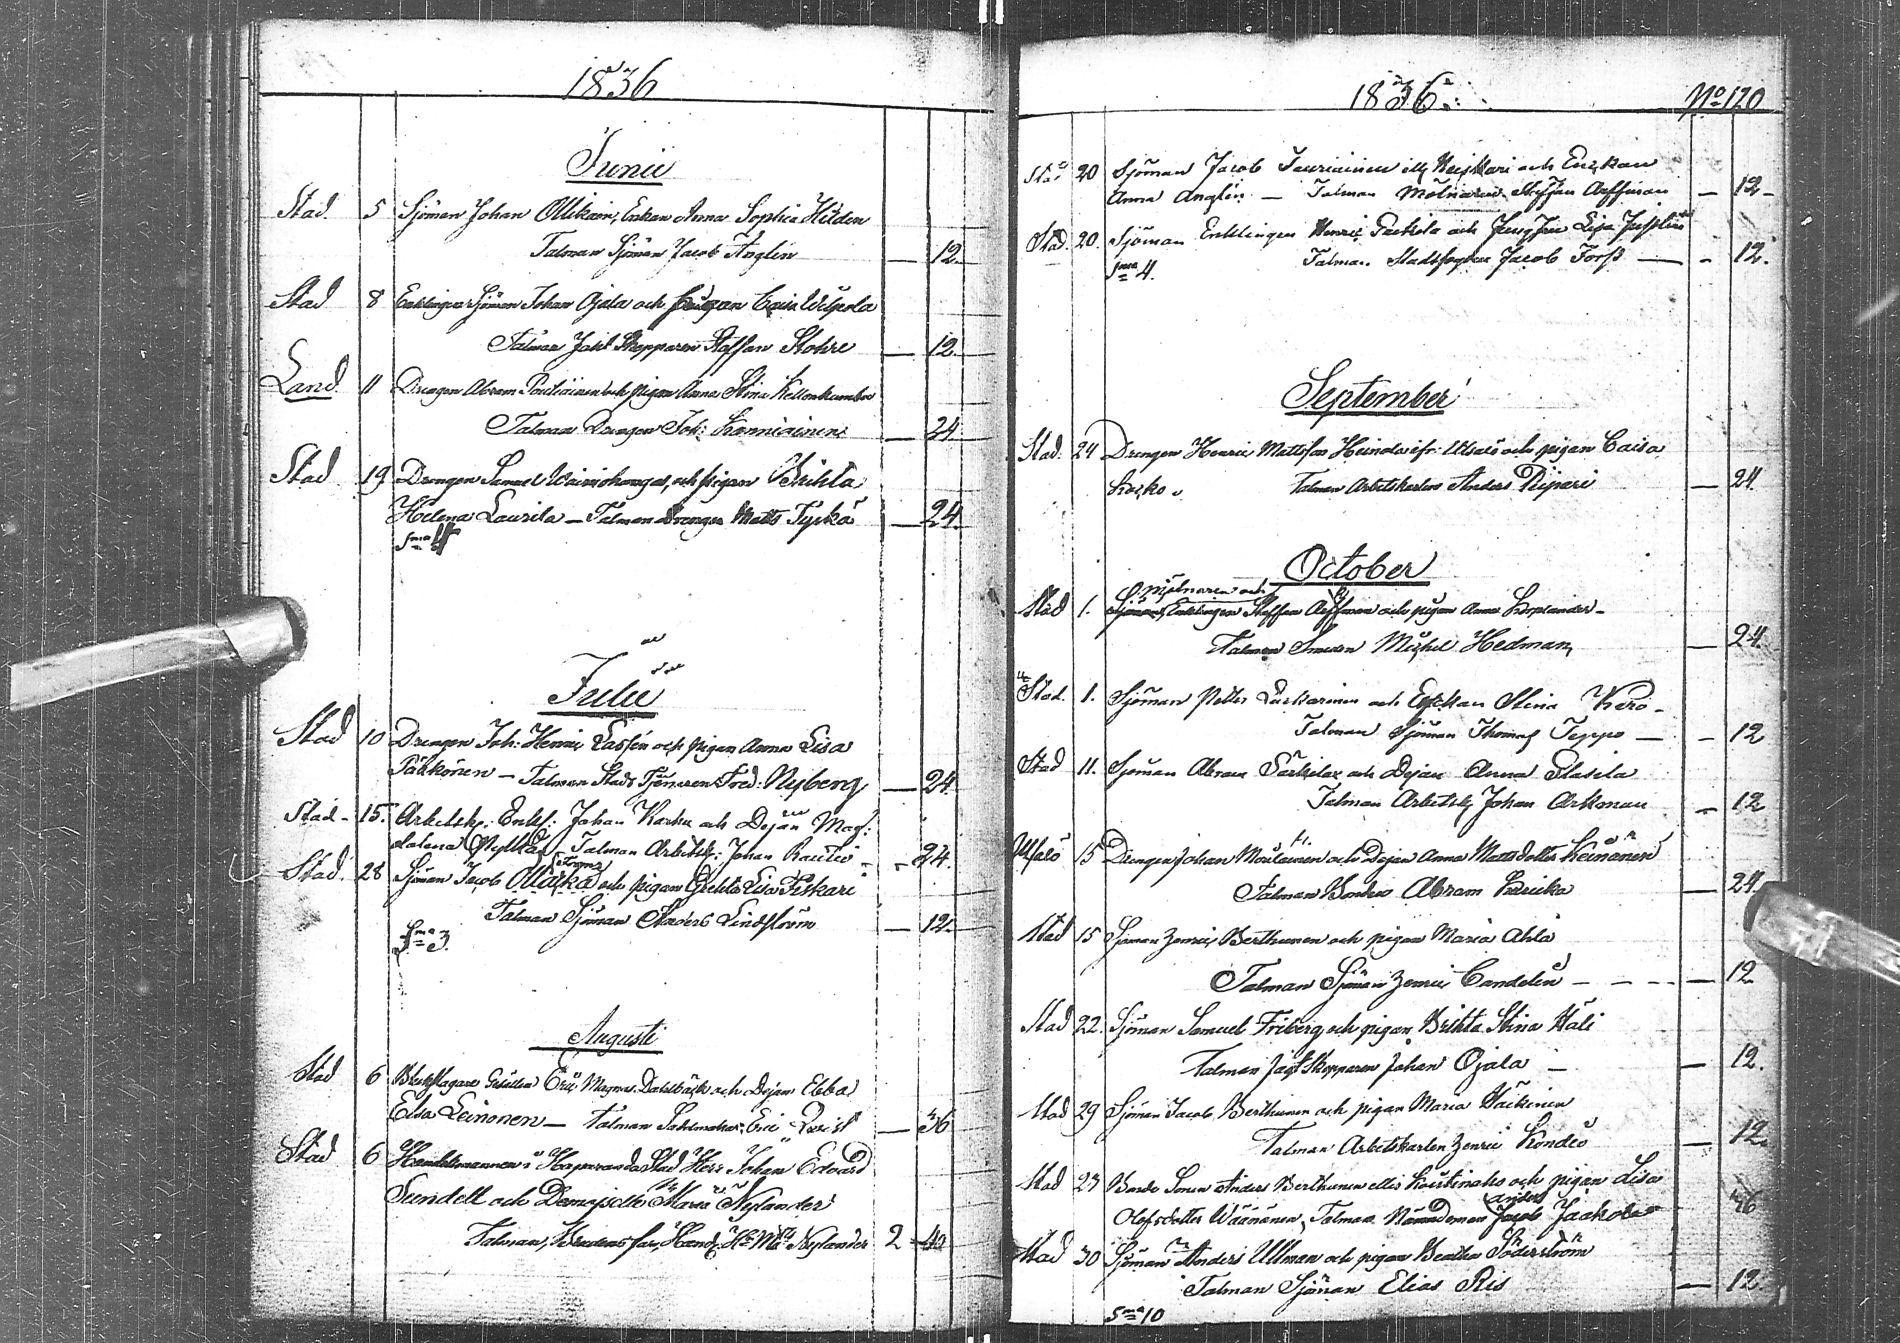 1836
Junii
Stad 5 Sjöman Johan Ollikain, Enkan Anna Sophia Hilden
Talman Sjöman Jacob Anglin — 12.
Stad 8 Enklingen Sjöman Johan Ojala och pigan Caisa Wilpola
Talman Jakt Skepparen Staffan Stohre — 12.
Land 11 Drengen Abram och pigan Anna Stina
Talman Drengen Joh: — 24
Stad 19 Drengen Samuel och pigan Brihta
Helena Laurila — Talman Drengen Matts Tyskä — 24.
Sma 4
Julii
Stad 10 Drengen Joh: Henric Lassin och pigan Anna Lisa
Päkkönen — Talman Stads Tjenaren Fred: Nyberg — 24.
Stad 15. Arbetsk: Enkl: Johan Karhu och Dejan Mag:
dalena Talman Arbetsk: Johan Rautio — 24.
Stad 28 Sjöman Jacob Ollarka och pigan Grehta Lisa Piskari
Talman Sjöman Anders Lindström — 12.
Sma 3.
Augusti
Stad 6 Bleckslagare Gesällen Eric Magnus Dahlbäck och Dejan Ebba
Elsa Leinonen — Talman Eric Qvist — 36
Stad 6 Handelsmannen i Haparanda Stad Herr Johan Edvard
Sundell och Demoiselle Maria Nylander
Talman, Brudens far, Hand: Nylander 2 40
1836. No 120
Stad 20 Sjöman Jacob Tauriainen och Enkan
Anna Anglin — Talman Mölnaren Steffan Aeffman — 12
Stad. 20. Sjöman Enklingen Henric och Jungfru Lisa Jusslin
Sma 4. Talman Jacob Forss — 12.
September
Stad. 24 Drengen Henric Mattsson Heinola ifr: Uhloå och pigan Caisa
Talman Arbetskarlen Anders Ripari — 24.
October
Mölnaren och
Stad 1. Sjöman, Enklingen Steffan Aeffman och pigan Anna Koplander —
Talman Smeden Michel Hedman — 24.
Stad. 1. Sjöman Petter och Enkan Stina Kero —
Talman Sjöman Thomas Teppo — 12
Stad 11. Sjöman Abram Särkilax och Dejan Anna
Talman Arbetsk: Johan Arkman — 12
15 Drengen Johan Moilainen och Dejan Anna Mattsdotter Keinänen
Talman Bonden Abram — 24.
Stad 15 Sjöman Henric Berthunen och pigan Maria Ahla
Talman Sjöman Henric Candelin — 12
Stad 22. Sjöman Samuel Friberg och pigan Brihta Stina Hali
Talman Jagt Skepparen Johan Ojala — 12.
Stad 29 Sjöman Jacob Berthunen och pigan Maria Häikinen
Talman Arbetskarlen Henric Kondio — 12.
Stad 27 Bonde Sonen Anders Berthunen eller och pigan Lisa
Anders
Olofsdotter Wäänänen, Talman Nämndeman Jacob Jaakola 46
Stad 30 Sjöman Anders Ullman och pigan Beatha Söderström
Talman Sjöman Elias Ris — 12.
Sma 10